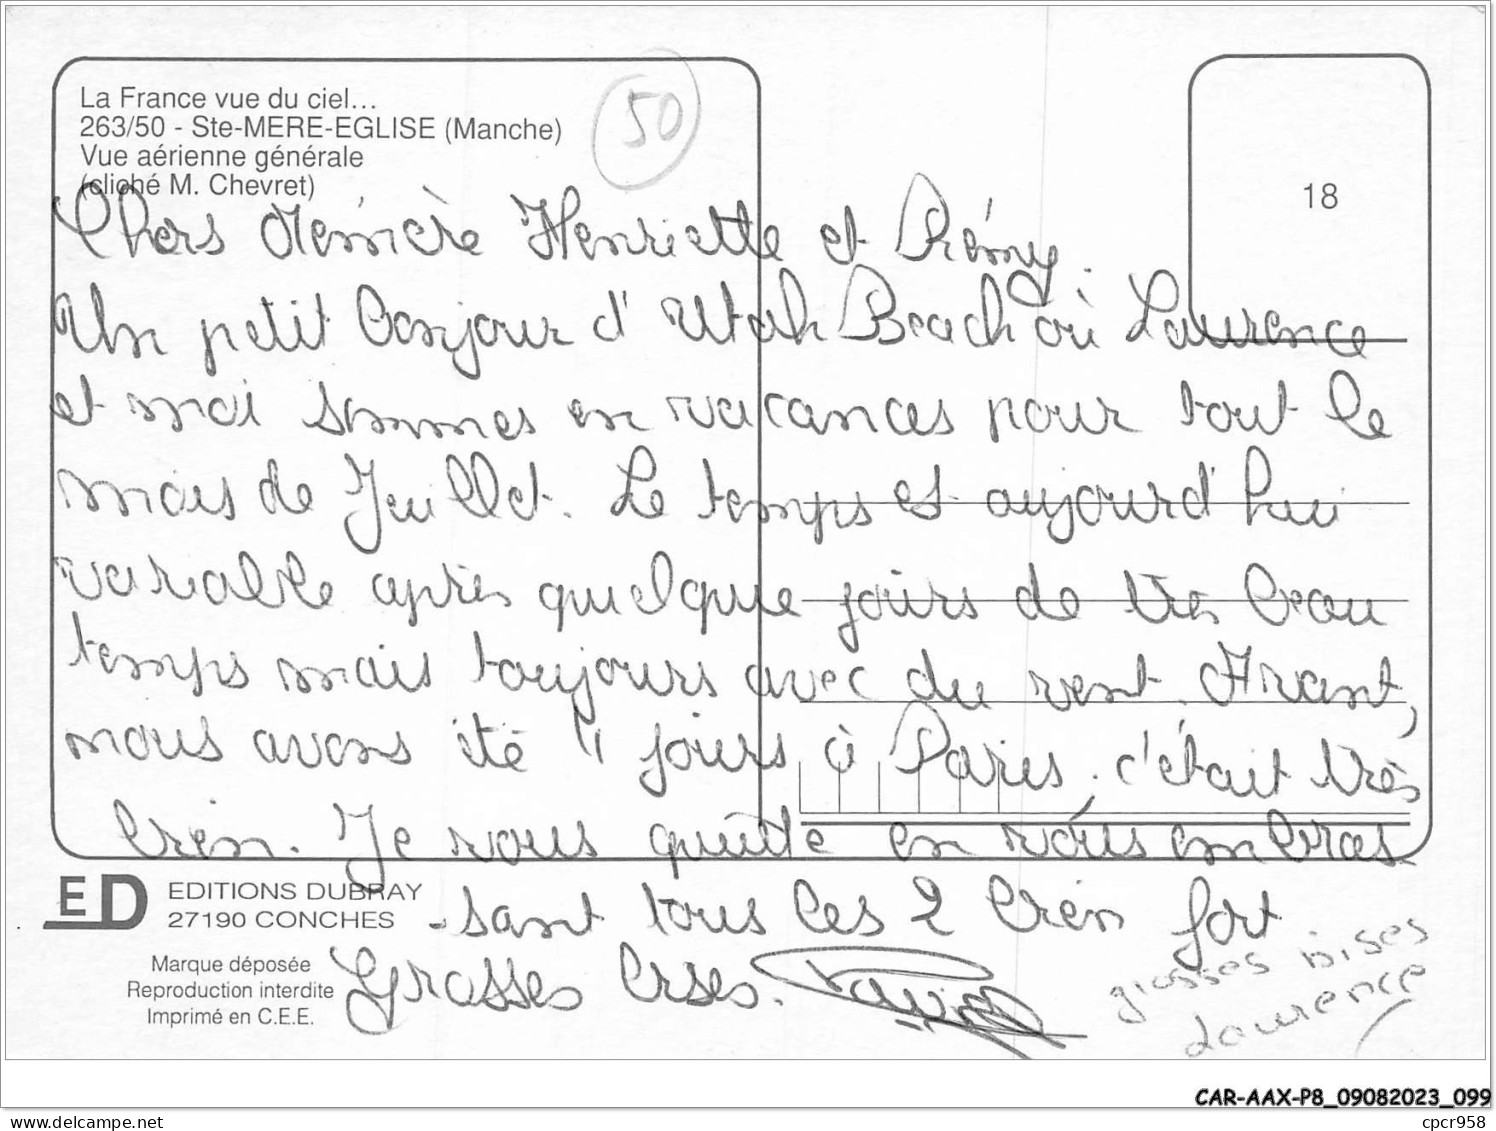 La France vue du ciel...
263/50 - Ste-MERE-EGLISE (Manche)
Vue aérienne générale
(cliché M. Chevret)
50
18
Chers Mémère Henriette et Rémy.
Un petit bonjour d'Utah Beach où Laurence
et moi sommes en vacances pour tout le
mois de Juillet. Le temps est aujourd'hui
variable après quelque jours de très beau
temps mais toujours avec du vent. Avant,
nous avons été 4 jours à Paris, c'était très
bien. Je vous quitte en vous embras
-sant tous les 2 bien fort
Grosses bises.
grosses bises
Laurence
ED
EDITIONS DUBRAY
27190 CONCHES
Marque déposée
Reproduction interdite
Imprimé en C.E.E.
CAR-AAX-P8_09082023_099
cpcr958